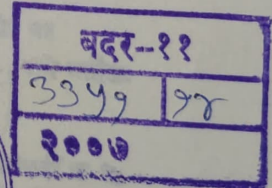 बदर--११
३३५१ १४
२००७